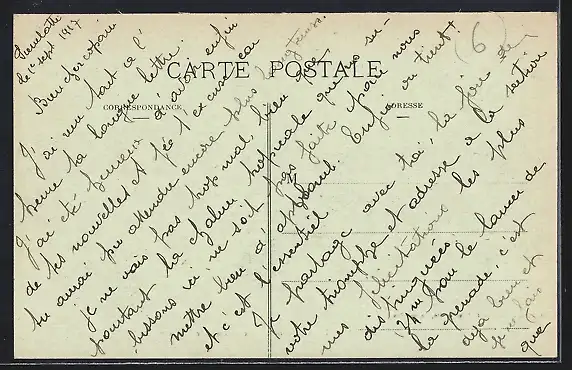 CARTE POSTALE
CORRESPONDANCE
ADRESSE
M
6
de 1er sept 1917
Bien cher copain
J'ai reçu tout à l'
heure ta longue lettre.
J'ai été heureux d'avoir enfin
de tes nouvelles et je t'excuse car
tu aurais pu attendre encore plus longtemps.
Je ne vais pas trop mal, bien que
pourtant la chaleur tropicale que nous su-
bissons ici ne soit pas faite pour nous
mettre bien d'aplomb. Enfin on tient!
et c'est l'essentiel
Je partage avec toi, la joie de
votre triomphe et adresse à la section
mes félicitations les plus
distinguées.
pour le lancer de
la grenade, c'est
déjà bien et
que